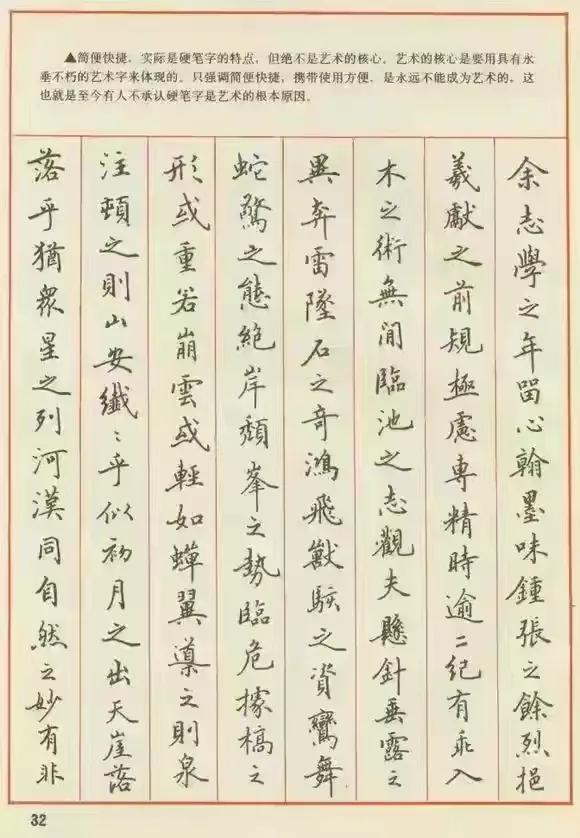 ▲简便快捷，实际是硬笔字的特点，但绝不是艺术的核心。艺术的核心是要用具有永
垂不朽的艺术字来体现的。只强调简便快捷，携带使用方便，是永远不能成为艺术的，这
也就是至今有人不承认硬笔字是艺术的根本原因。
余志學之年留心翰墨味鍾張之餘烈挹
羲獻之前規極慮專精時逾二紀有乖入
木之術無間臨池之志觀夫懸針垂露之
異奔雷墜石之奇鴻飛獸駭之資鸞舞
蛇驚之態絕岸頹峯之勢臨危據槁之
形或重若崩雲或輕如蟬翼導之則泉
注頓之則山安纖纖乎似初月之出天崖落
落乎猶眾星之列河漢同自然之妙有非
32